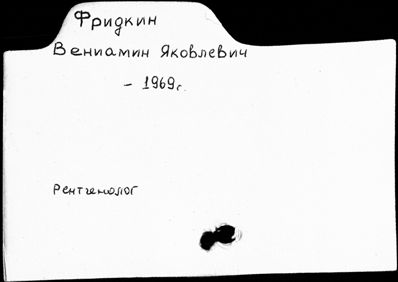 Фридкин
Вениамин Яковлевич
– 1969г.
Рентгенолог